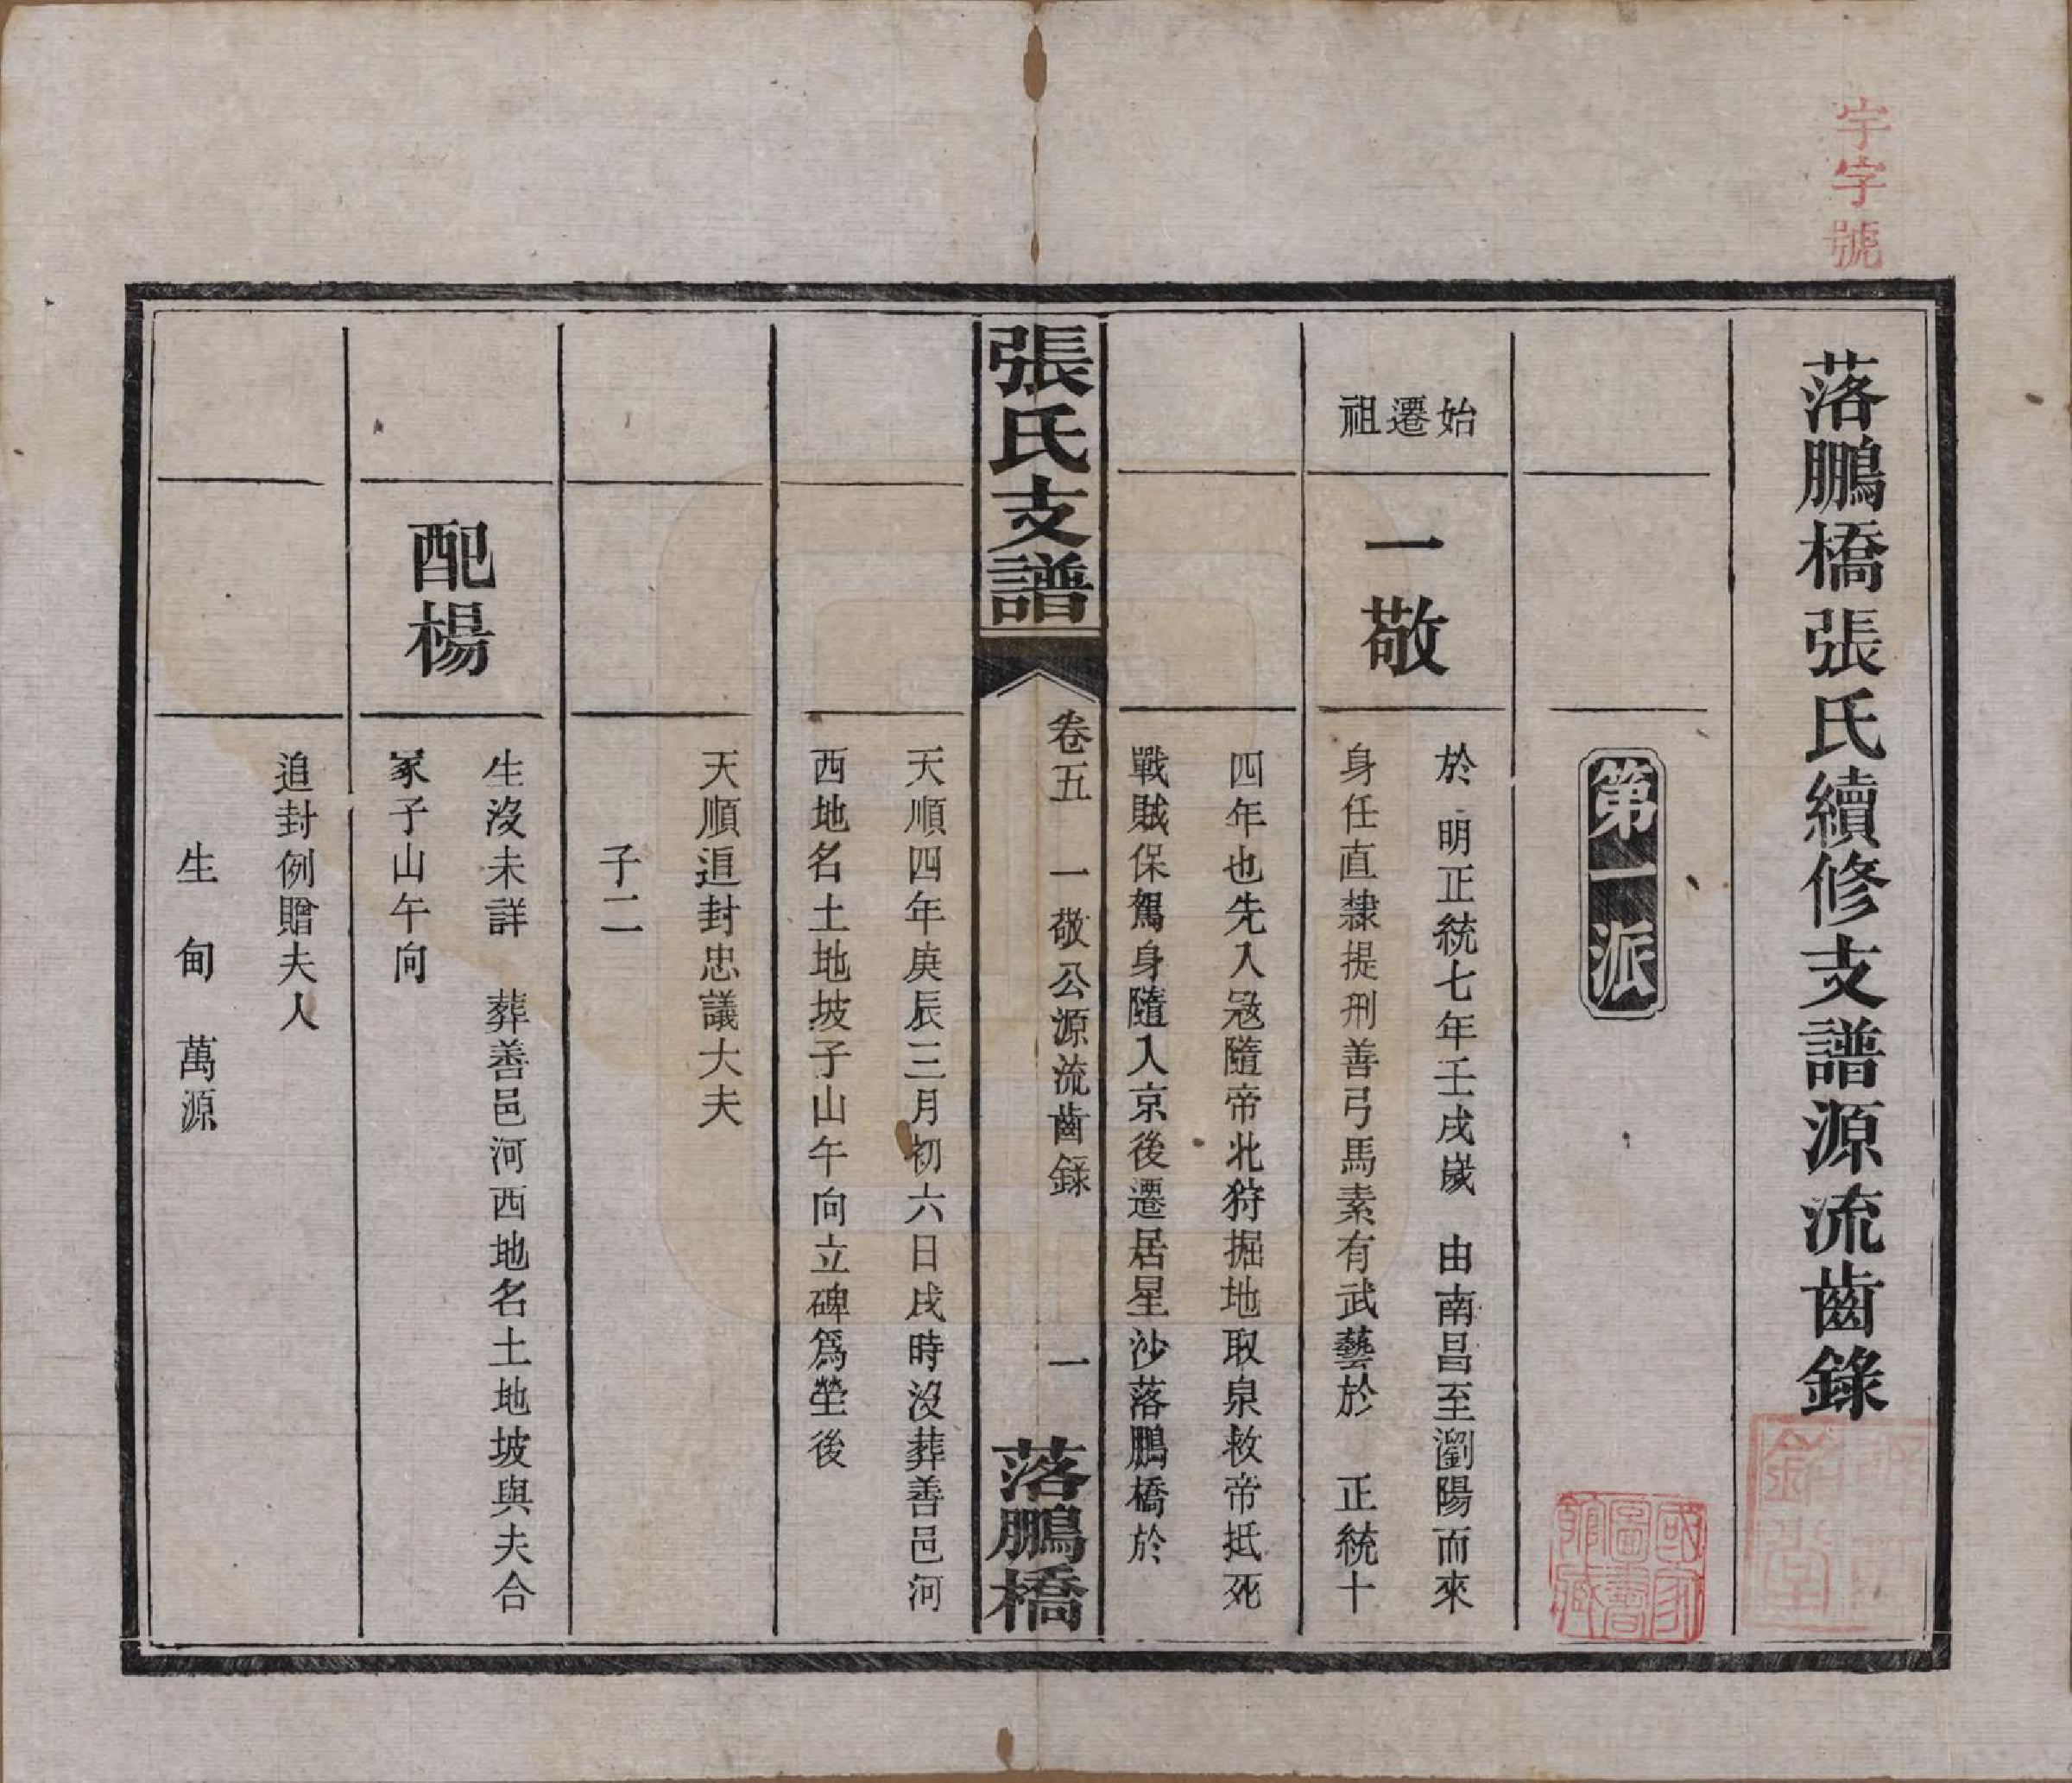 宇字號
落鵬橋張氏續修支譜源流齒錄
第一派
始遷祖
一敬
於 明正統七年壬戌歲 由南昌至瀏陽而來
身任直隸提刑善弓馬素有武藝於 正統十
四年也先入寇隨帝北狩掘地取泉救帝抵死
戰賊保駕身隨入京後遷居星沙落鵬橋於
張氏支譜
卷五 一敬公源流齒錄
一
落鵬橋
天順四年庚辰三月初六日戌時沒葬善邑河
西地名土地坡子山午向立碑爲塋後
天順追封忠議大夫
子二
配楊
生沒未詳 葬善邑河西地名土地坡與夫合
冢子山午向
追封例贈夫人
生 甸 萬源
國家圖書館藏